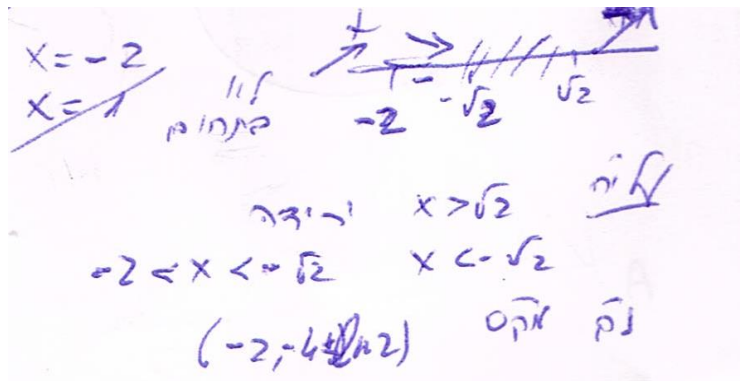 x = -2
x = 1
לא בתחום
+ -
-2 -√2 √2
עליה x > √2 ירידה
x < -√2 -2 < x < -√2
נק' מקס (-2, -4+ln2)